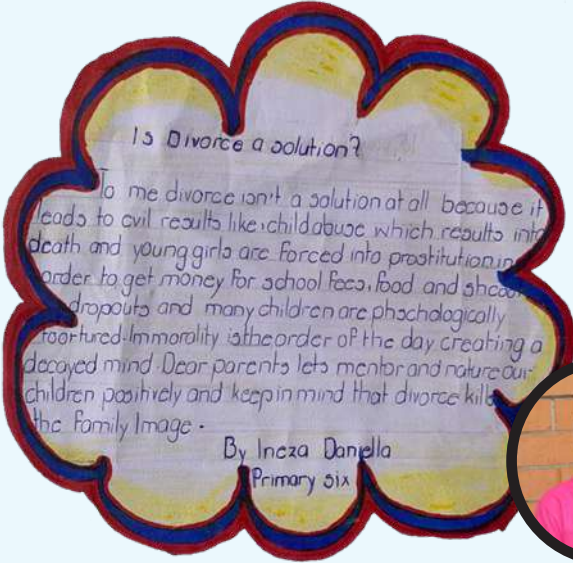 Is Divorce a solution?
To me divorce isn't a solution at all because it
leads to evil results like, child abuse which results into
death and young girls are forced into prostitution in
order to get money for school fees, food and
dropouts and many children are phschologically
toortured. Immorality is the order of the day creating a
decayed mind. Dear parents lets mentor and nature our
children positively and keep in mind that divorce kills
the family Image.
By Ineza Daniella
Primary six